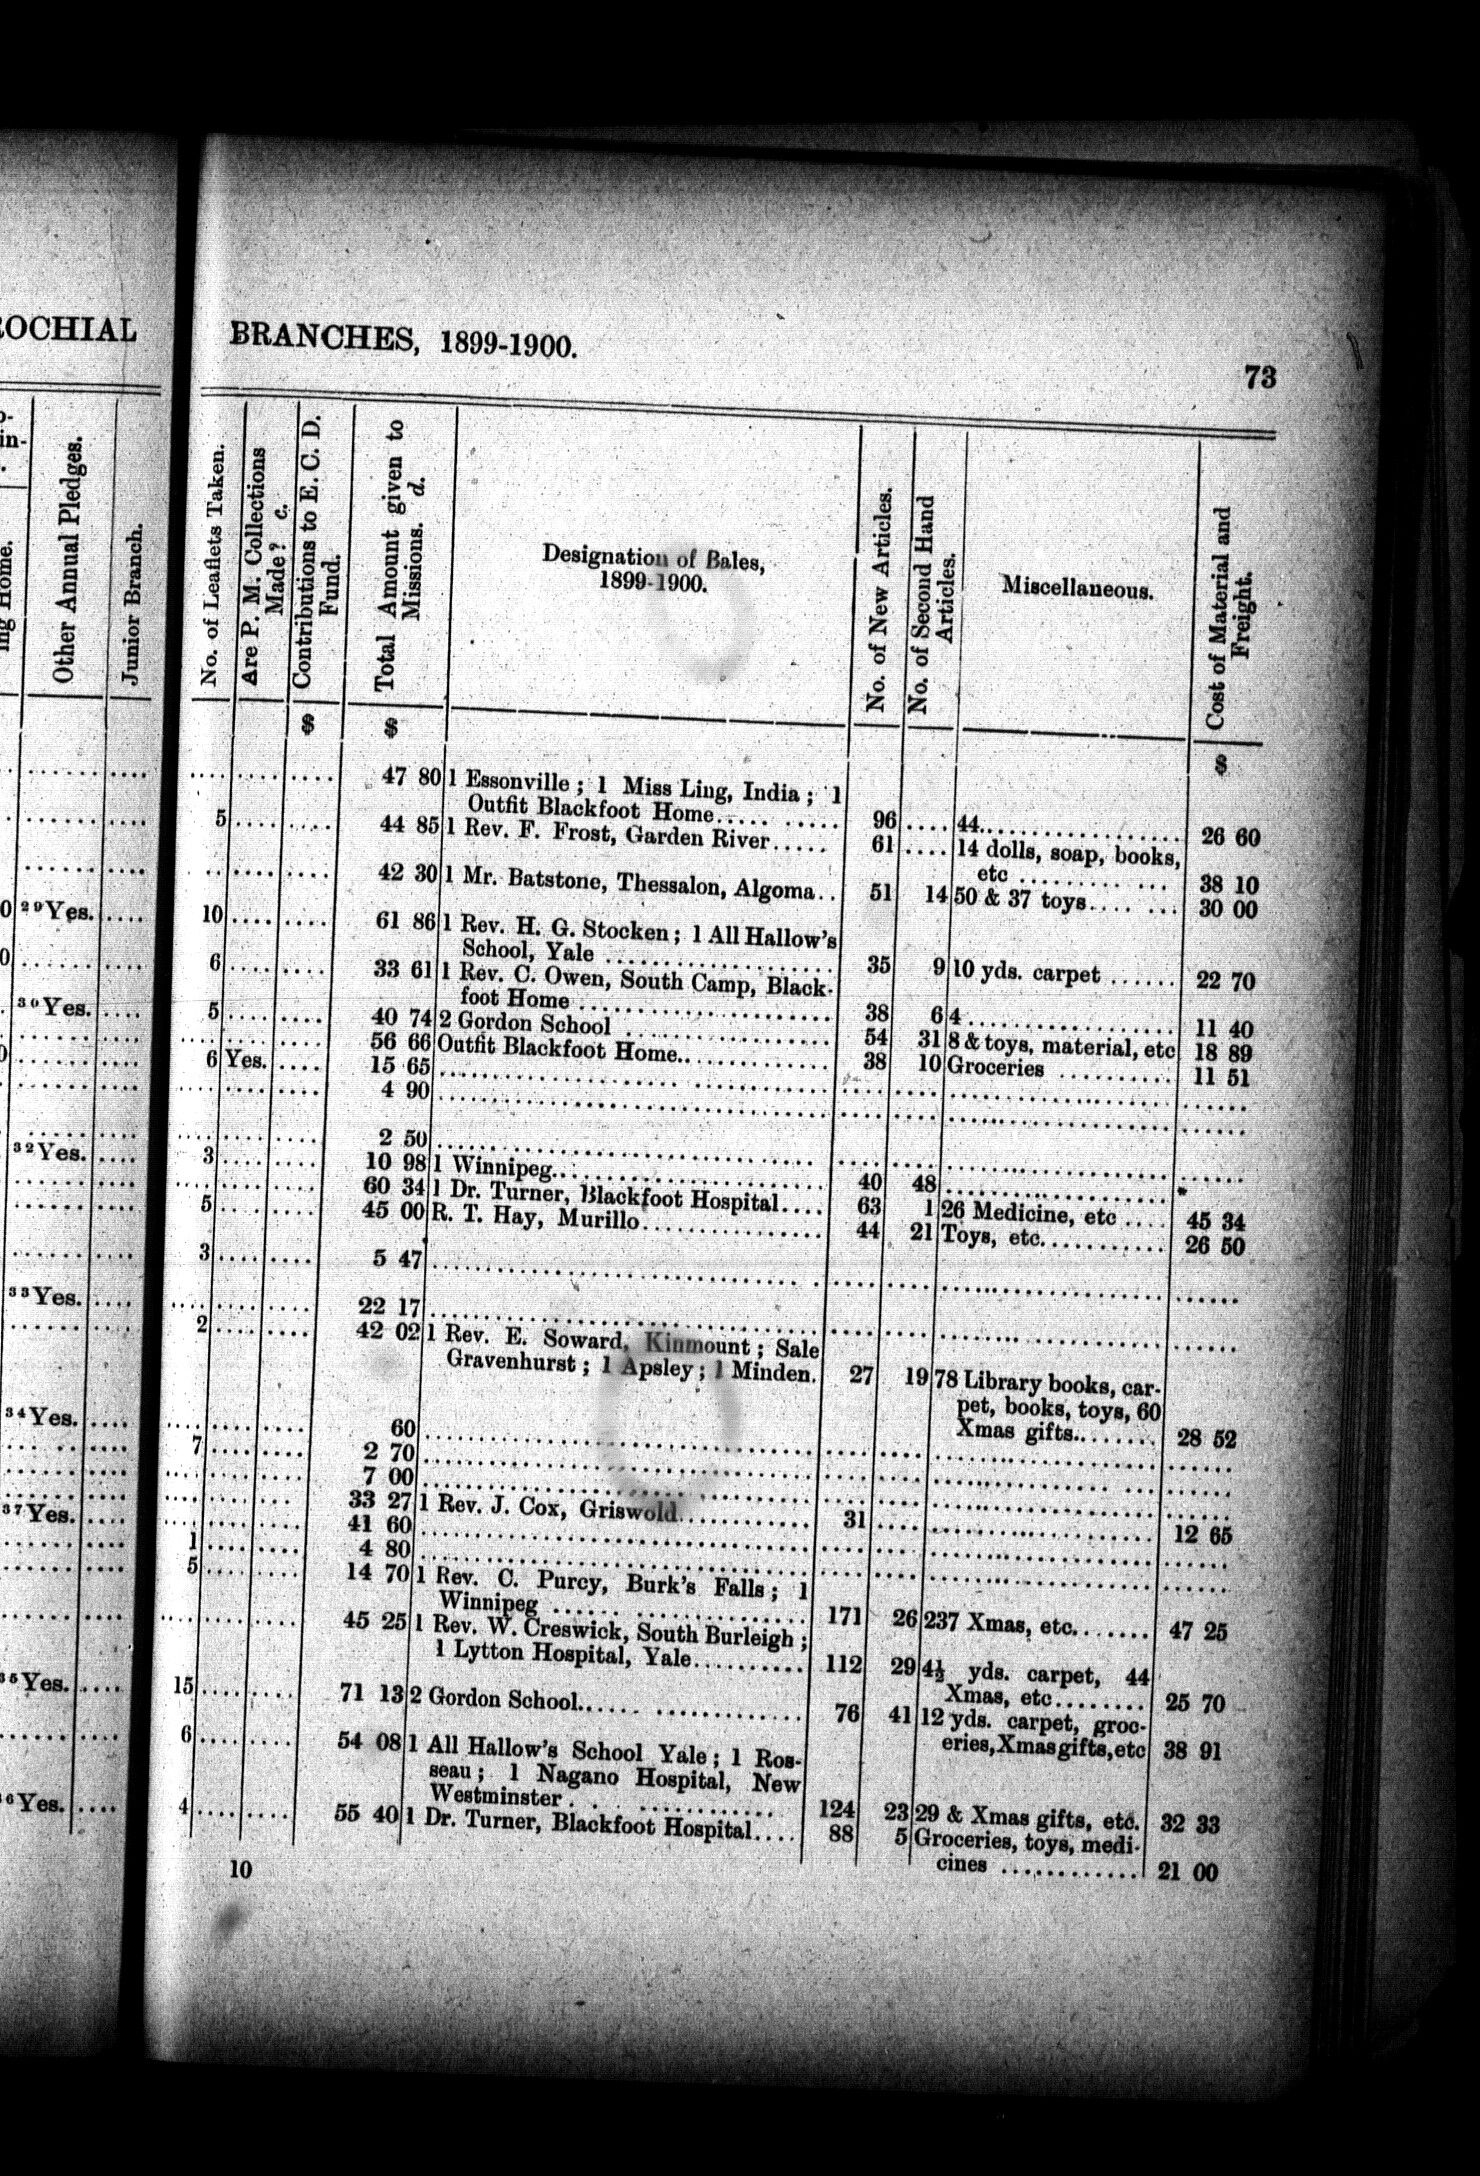 ROCHIAL
Other Annual Pledges.
Junior Branch.
29Yes.
30Yes.
32Yes.
33Yes.
34Yes.
37Yes.
35Yes.
36Yes.
BRANCHES, 1899-1900.
73
No. of Leaflets Taken.
Are P. M. Collections
Made? c.
Contributions to E. C. D.
Fund.
Total Amount given to
Missions. d.
Designation of Bales,
1899-1900.
No. of New Articles.
No. of Second Hand
Articles.
Miscellaneous.
Cost of Material and
Freight.
$ $ $
.... .... .... 47 80 1 Essonville ; 1 Miss Ling, India ; 1
Outfit Blackfoot Home........... 96 .... 44.................. 26 60
5 .... .... 44 85 1 Rev. F. Frost, Garden River..... 61 .... 14 dolls, soap, books,
etc .............. 38 10
.. .... .... 42 30 1 Mr. Batstone, Thessalon, Algoma.. 51 14 50 & 37 toys........ 30 00
10 .... .... 61 86 1 Rev. H. G. Stocken ; 1 All Hallow's
School, Yale ................... 35 9 10 yds. carpet ...... 22 70
6 .... .... 33 61 1 Rev. C. Owen, South Camp, Black-
foot Home ...................... 38 6 4................... 11 40
5 .... .... 40 74 2 Gordon School ................... 54 31 8 & toys, material, etc 18 89
.... .... .... 56 66 Outfit Blackfoot Home............. 38 10 Groceries .......... 11 51
6 Yes. .... 15 65 ....................................
.... .... .... 4 90 ....................................
.... .... .... 2 50 ....................................
3 .... .... 10 98 1 Winnipeg......................... 40 48 .................... *
.... .... .... 60 34 1 Dr. Turner, Blackfoot Hospital.... 63 1 26 Medicine, etc .... 45 34
5 .... .... 45 00 R. T. Hay, Murillo................ 44 21 Toys, etc........... 26 50
3 .... .... 5 47 ....................................
.... .... .... 22 17 ....................................
2 .... .... 42 02 1 Rev. E. Soward, Kinmount ; Sale
Gravenhurst ; 1 Apsley ; 1 Minden. 27 19 78 Library books, car-
pet, books, toys, 60
Xmas gifts........ 28 52
.... .... .... 60 ....................................
7 .... .... 2 70 ....................................
.... .... .... 7 00 ....................................
.... .... .... 33 27 1 Rev. J. Cox, Griswold............ 31 .... .................... 12 65
.... .... .... 41 60 ....................................
1 .... .... 4 80 ....................................
5 .... .... 14 70 1 Rev. C. Purcy, Burk's Falls ; 1
Winnipeg ..................... 171 26 237 Xmas, etc....... 47 25
.... .... .... 45 25 1 Rev. W. Creswick, South Burleigh ;
1 Lytton Hospital, Yale.......... 112 29 4½ yds. carpet, 44
Xmas, etc........ 25 70
15 .... .... 71 13 2 Gordon School.................... 76 41 12 yds. carpet, groc-
eries, Xmas gifts, etc 38 91
6 .... .... 54 08 1 All Hallow's School Yale ; 1 Ros-
seau ; 1 Nagano Hospital, New
Westminster ................. 124 23 29 & Xmas gifts, etc. 32 33
4 .... .... 55 40 1 Dr. Turner, Blackfoot Hospital.... 88 5 Groceries, toys, medi-
cines ............. 21 00
10